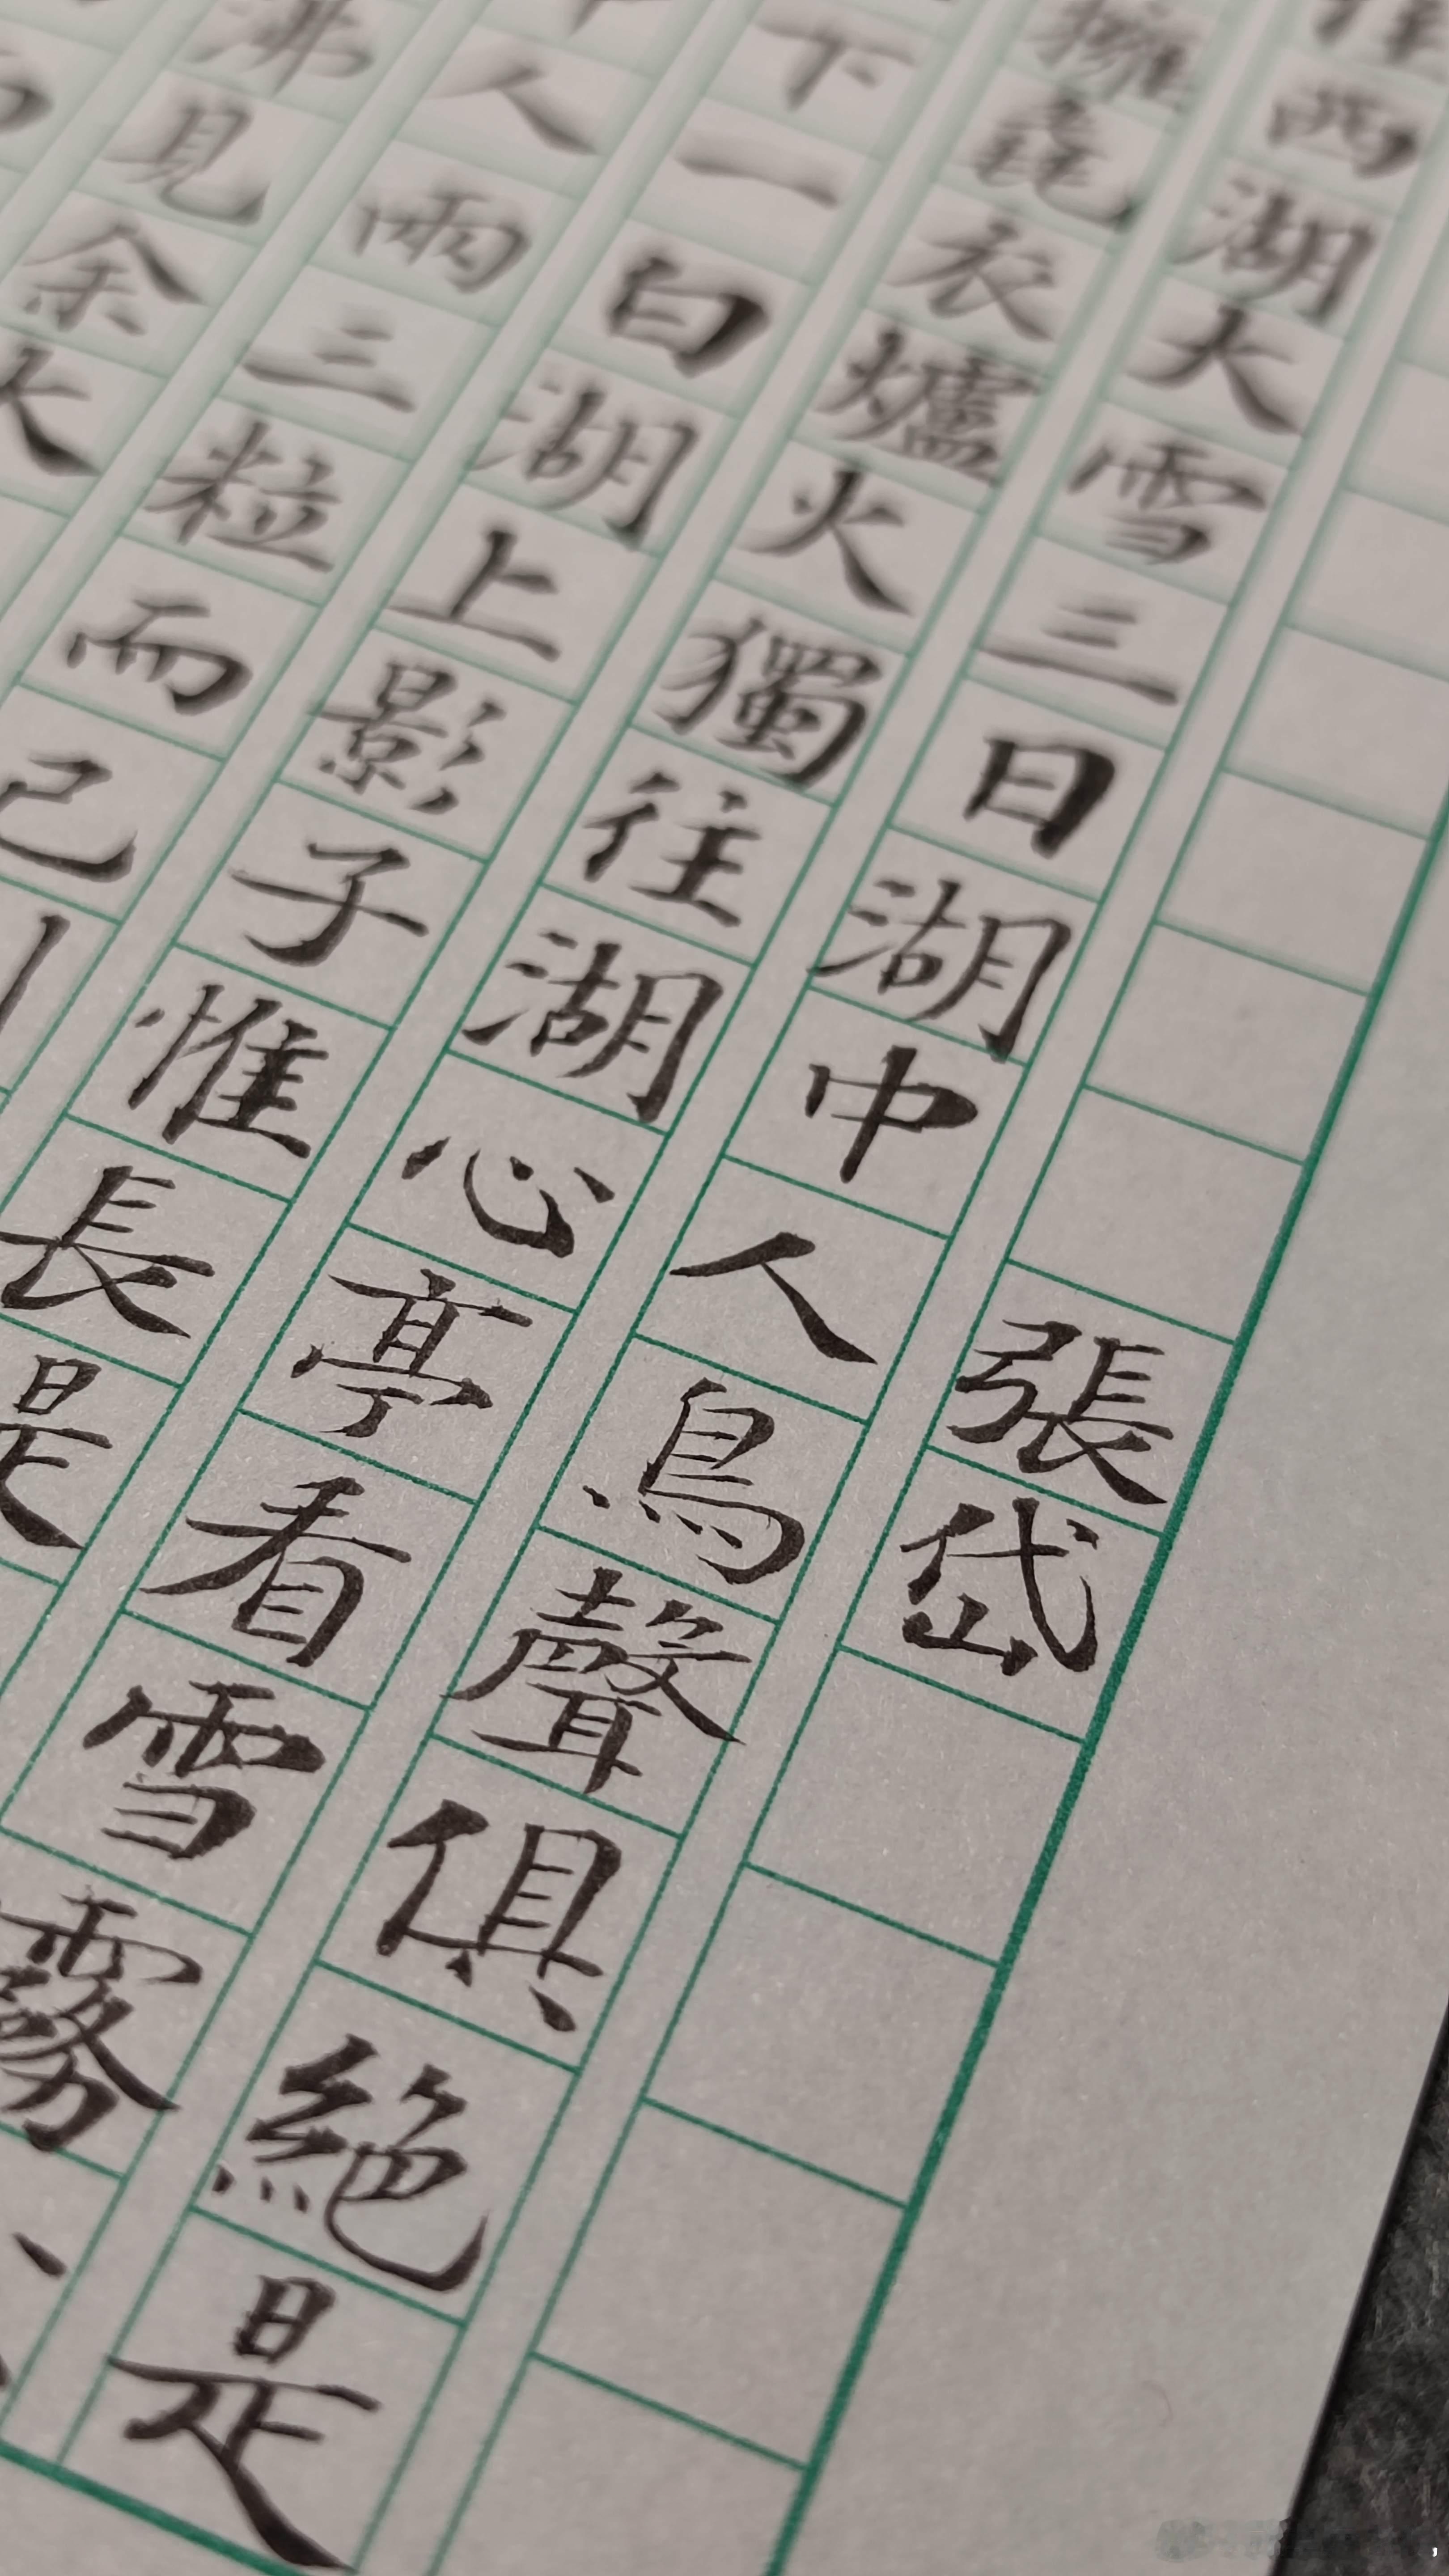 張岱
西湖大雪三日湖中人鳥聲俱絕是
擁毳衣爐火獨往湖心亭看雪霧
下一白湖上影子惟長
人兩三粒而已
沸見余大